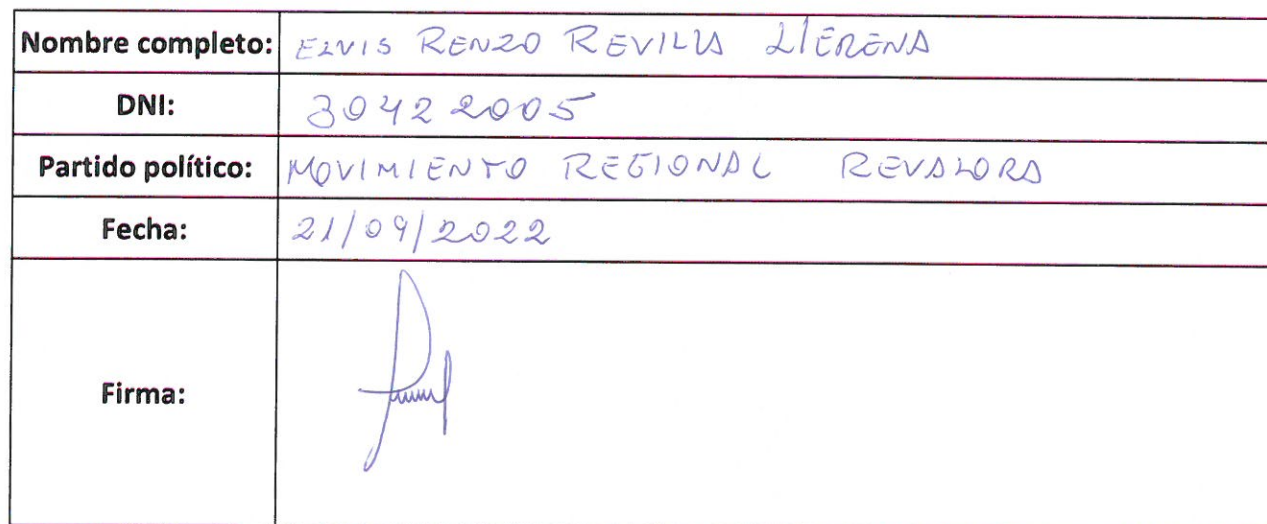 Nombre completo: ELVIS RENZO REVILLA LLERENA
DNI: 30422005
Partido político: MOVIMIENTO REGIONAL REVALORA
Fecha: 21/09/2022
Firma: